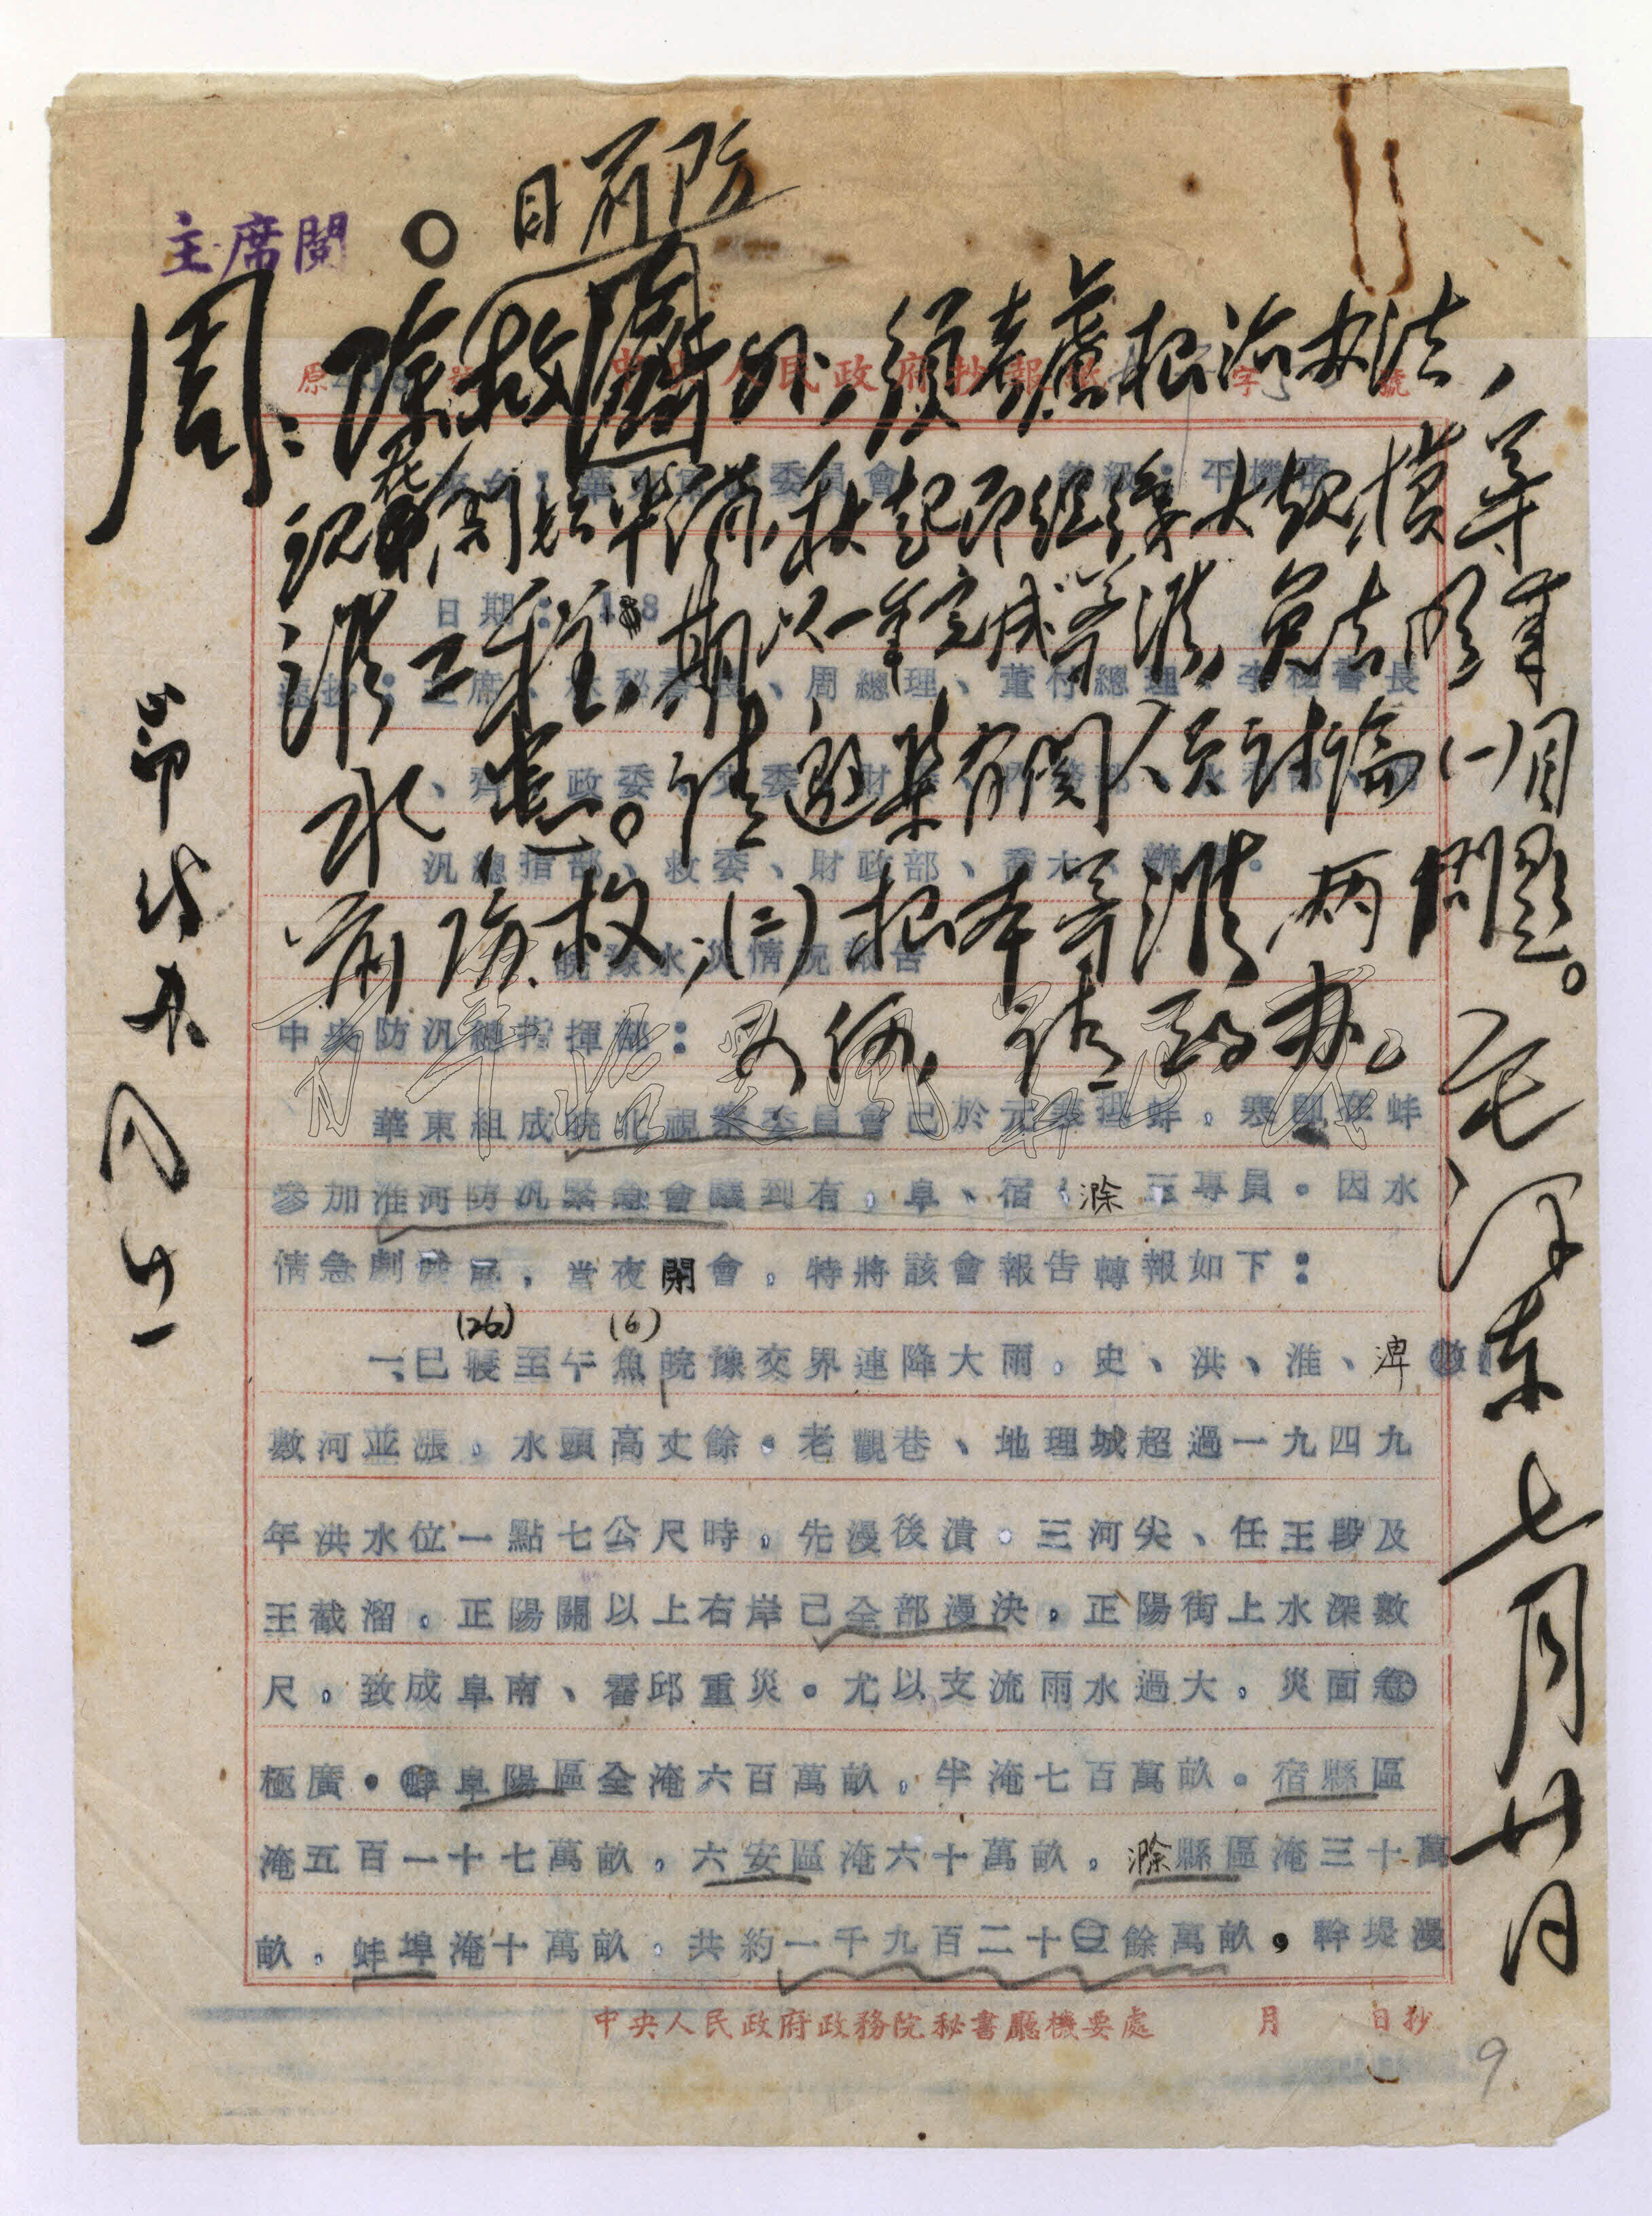 主席閱
目前防
周:除救外,须考慮根治办法,
现在開始準備,秋起即組織大規模导
淮工程,期以一年完成导淮,免去明年
水患。请邀集有関人员讨論(一)目
前防救;(二)根本导淮两問題。
如何,请酌办。
毛泽东
七月廿日
中央人民政府抄報
委員會
日期:
主席、秘書長、周總理、董付總理、李秘書長
汎總指部、救委、財政部、喬木、
皖豫水災情況報告
中央防汎總指揮部:
華東組成皖北視察委員會已於元寒抵蚌,寒即在蚌
參加淮河防汎緊急會議到有,阜、宿、滁三專員。因水
情急劇發展,當夜開會,特將該會報告轉報如下:
(26) (6)
一、巳寢至午魚皖豫交界連降大雨,史、洪、淮、淠
數河並漲,水頭高丈餘。老觀巷、地理城超過一九四九
年洪水位一點七公尺時,先漫後潰。三河尖、任王段及
王截溜,正陽關以上右岸已全部漫決,正陽街上水深數
尺,致成阜南、霍邱重災。尤以支流雨水過大,災面
極廣。阜陽區全淹六百萬畝,半淹七百萬畝。宿縣區
淹五百一十七萬畝,六安區淹六十萬畝,滁縣區淹三十萬
畝,蚌埠淹十萬畝,共約一千九百二十餘萬畝,幹堤漫
中央人民政府政務院秘書廳機要處 月 日抄
9